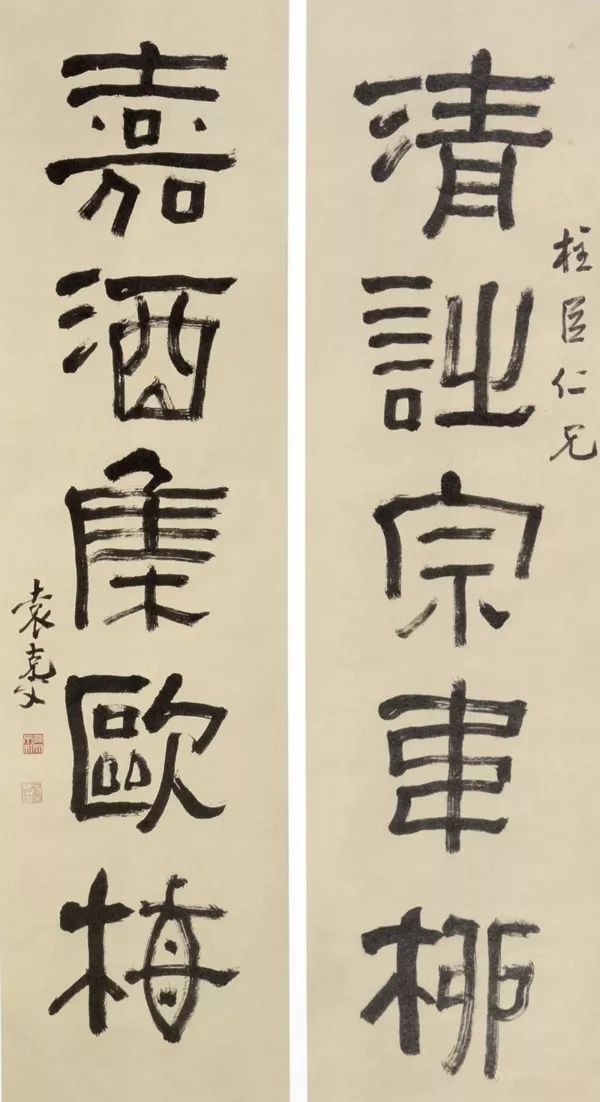 柱臣仁兄
清詩宗韋柳
嘉酒集歐梅
袁克文